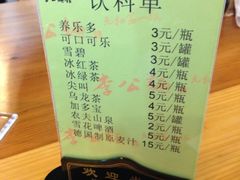 饮料单
养乐多 3元/瓶
可口可乐 3元/罐
雪碧 3元/罐
冰红茶 4元/瓶
冰绿茶 4元/瓶
尖叫 4元/瓶
乌龙茶 5元/瓶
加多宝 5元/罐
农夫山泉 2元/瓶
雪花啤酒 5元/瓶
德国制原麦汁 15元/瓶
欢迎